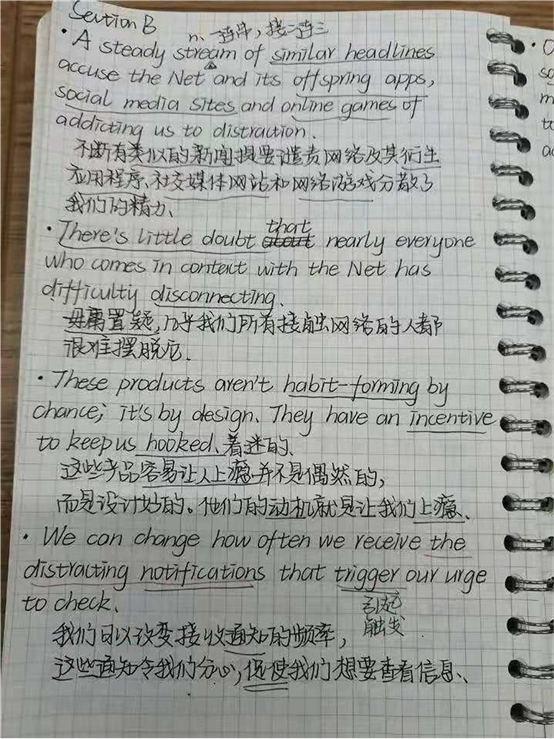 Section B
n. 一连串，接二连三
· A steady stream of similar headlines
accuse the Net and its offspring apps,
social media sites and online games of
addicting us to distraction.
不断有类似的新闻提要谴责网络及其衍生
应用程序、社交媒体网站和网络游戏分散了
我们的精力、
· There's little doubt that nearly everyone
who comes in contact with the Net has
difficulty disconnecting.
毋庸置疑，几乎我们所有接触网络的人都
很难摆脱它.
· These products aren't habit-forming by
chance; it's by design. They have an incentive
to keep us hooked. 着迷的、
这些产品容易让人上瘾并不是偶然的，
而是设计好的。他们的动机就是让我们上瘾、
· We can change how often we receive the
distracting notifications that trigger our urge
to check.
引起
触发
我们可以改变接收通知的频率，
这些通知令我们分心，促使我们想要查看信息、